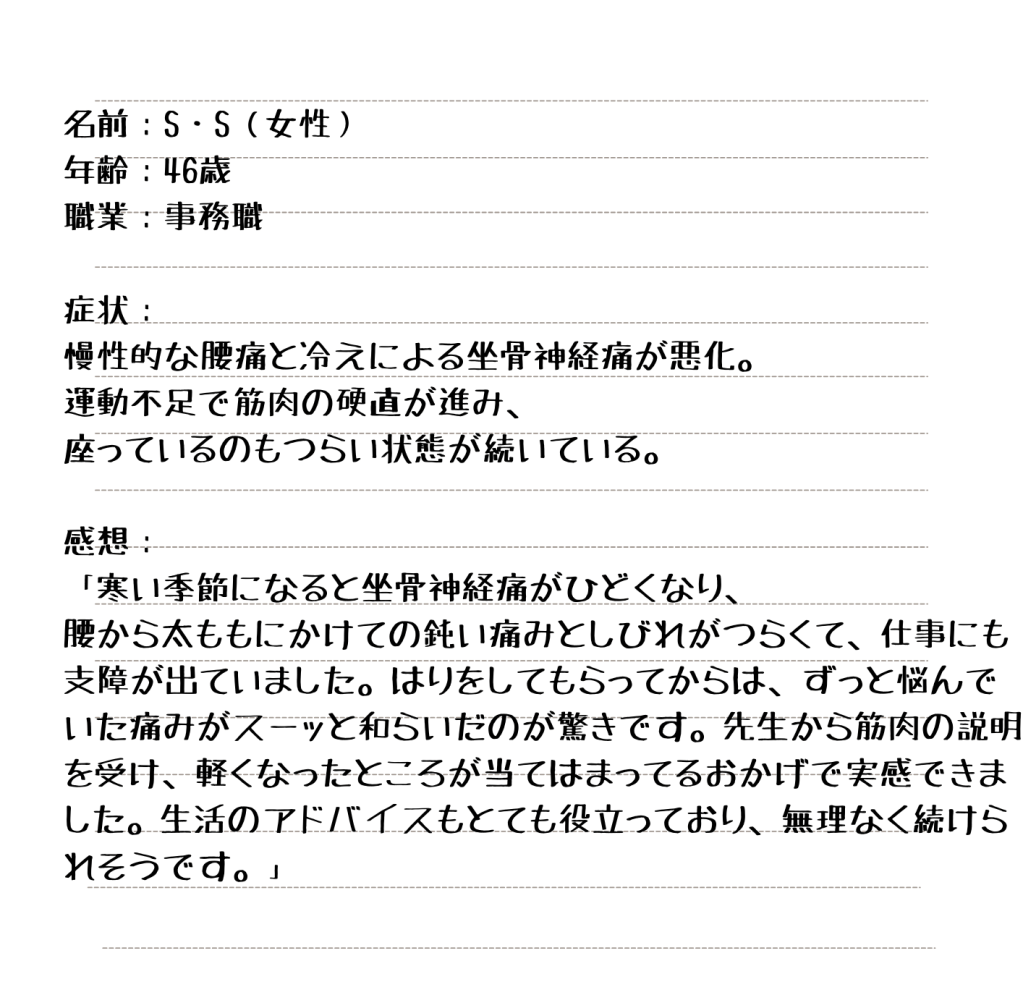 名前：S・S（女性）
年齢：46歳
職業：事務職
症状：
慢性的な腰痛と冷えによる坐骨神経痛が悪化。
運動不足で筋肉の硬直が進み、
座っているのもつらい状態が続いている。
感想：
「寒い季節になると坐骨神経痛がひどくなり、
腰から太ももにかけての鈍い痛みとしびれがつらくて、仕事にも
支障が出ていました。はりをしてもらってからは、ずっと悩んで
いた痛みがスーッと和らいだのが驚きです。先生から筋肉の説明
を受け、軽くなったところが当てはまってるおかげで実感できま
した。生活のアドバイスもとても役立っており、無理なく続けら
れそうです。」